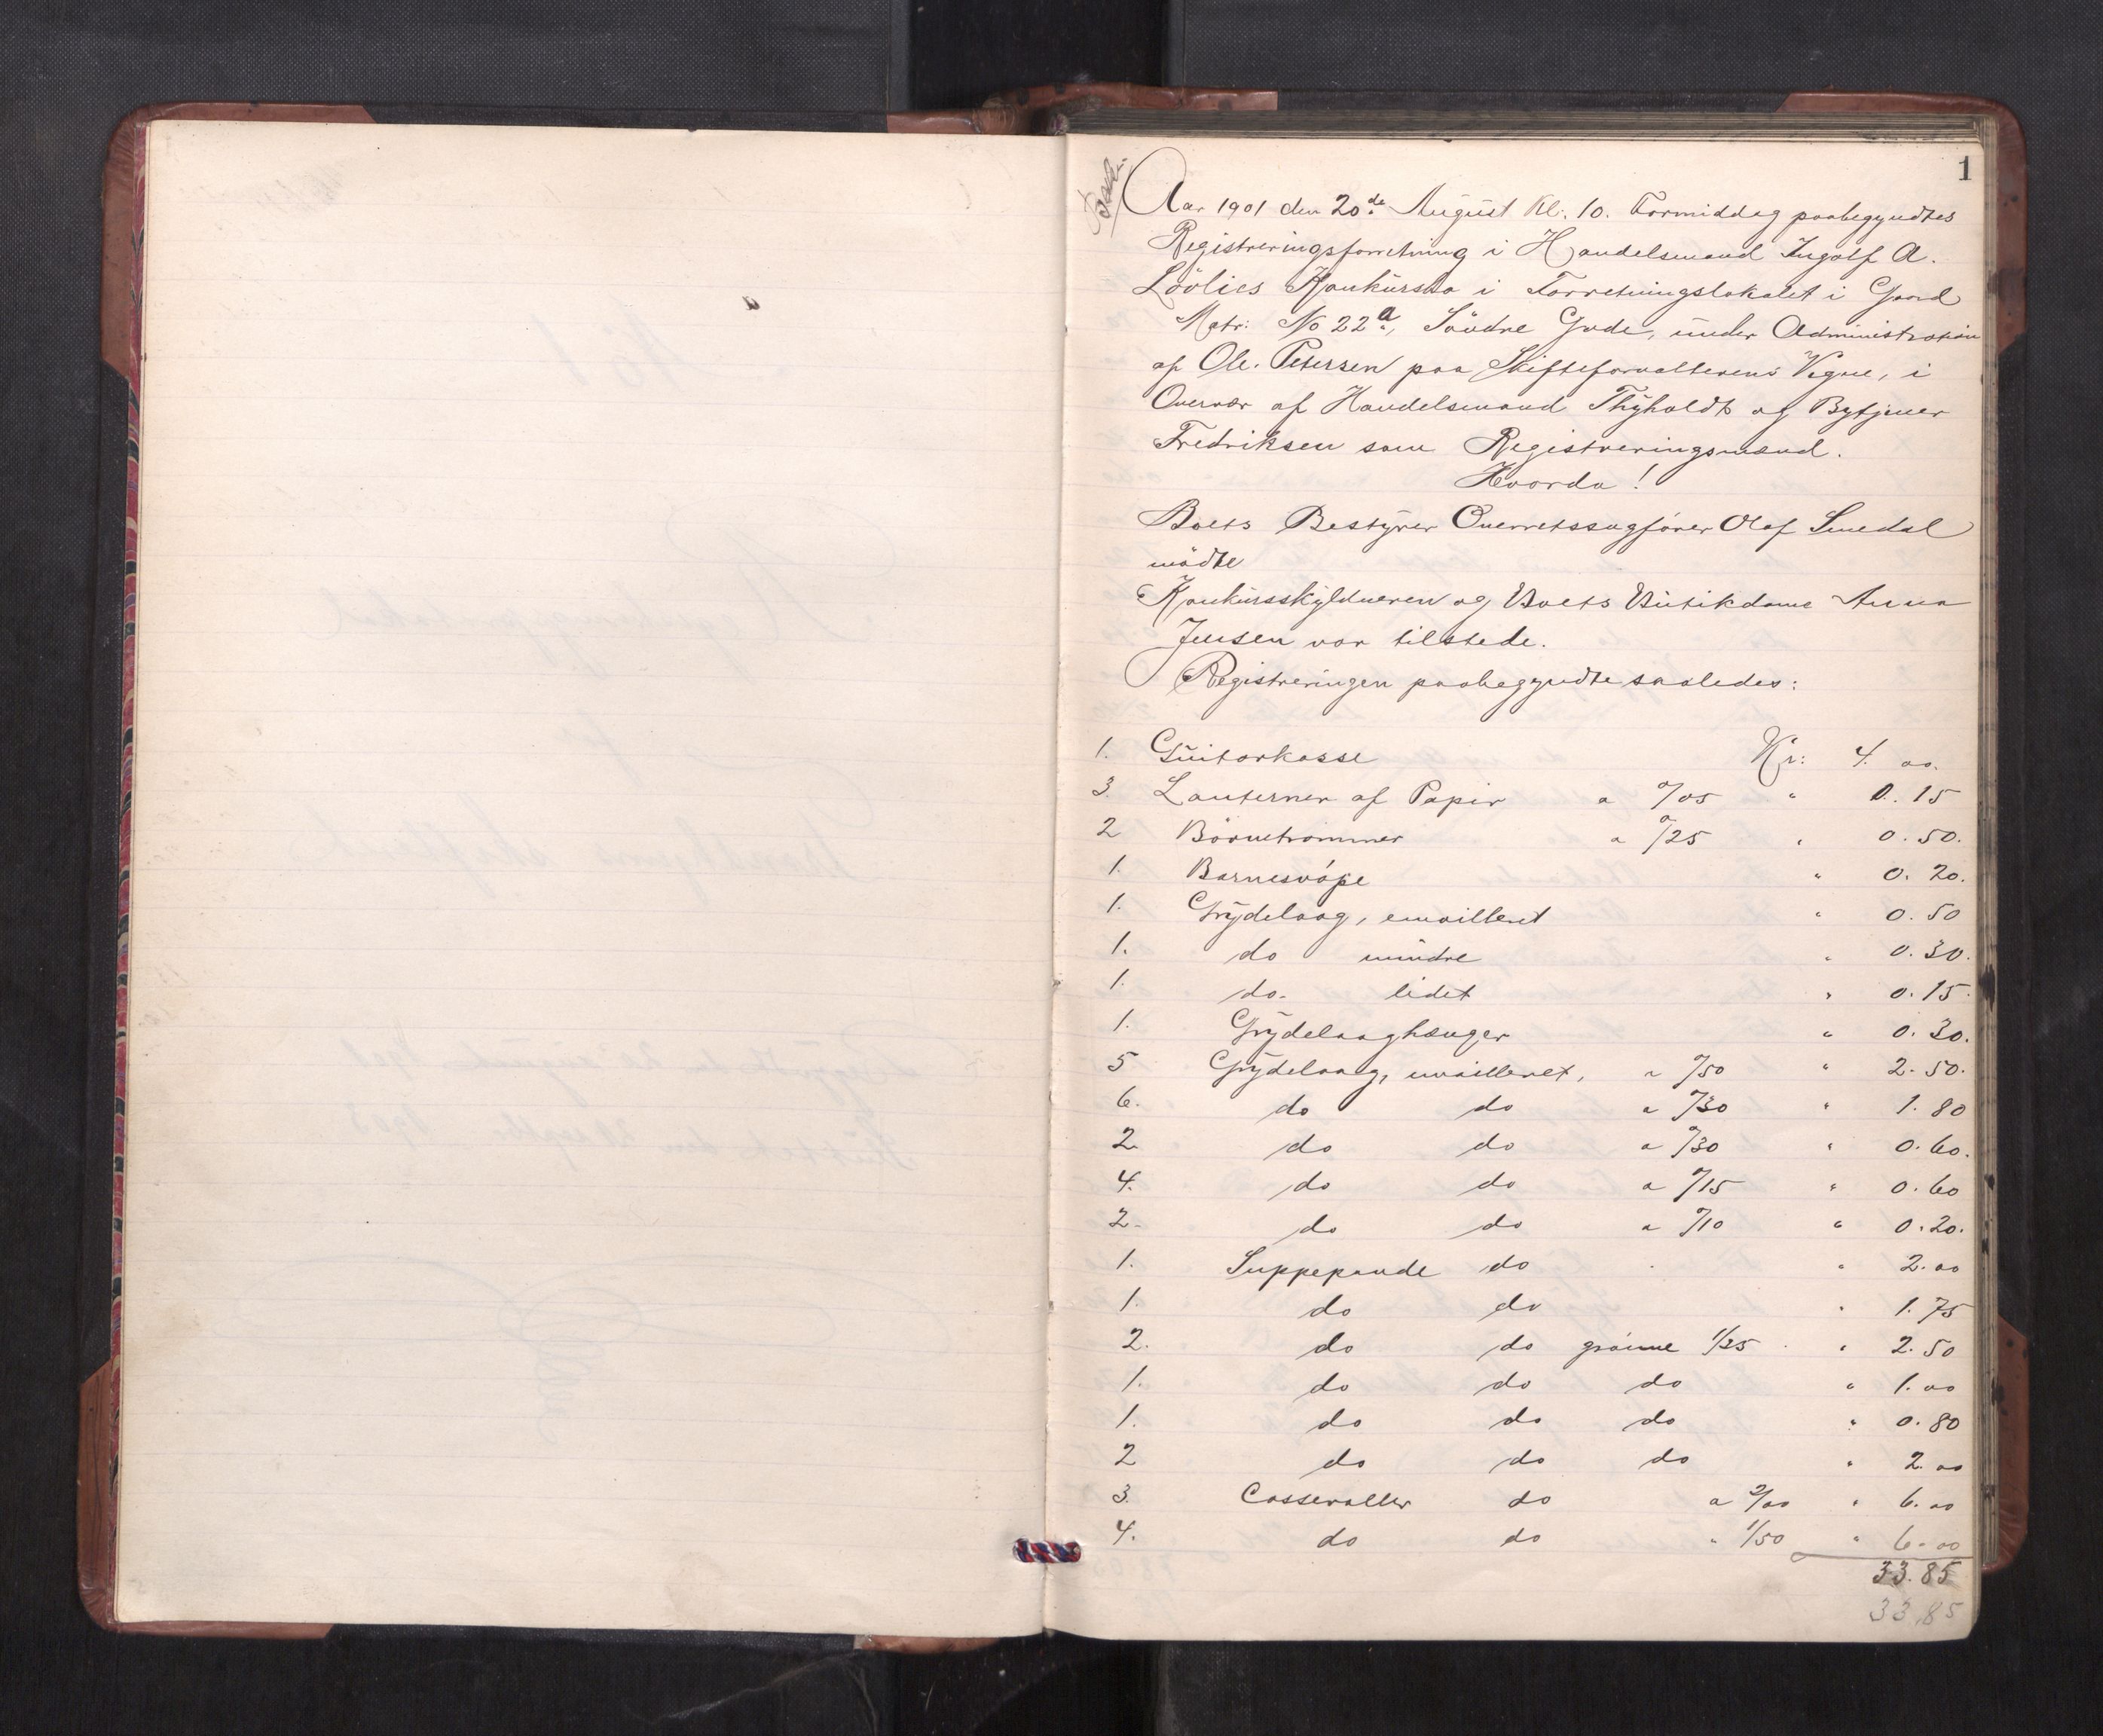 1
Aar 1901 den 20de August Kl. 10. Formiddag paabegyndtes
Registreringsforretning i Handelsmand Ingolf A.
Löölies Konkursbo i Forretningslokalet i Gaard
Matr: No 22a, Söndre Gade, under Administration
af Ole. Petersen paa Skifteforvalterens Vegne, i
Overvær af Handelsmand Thyholdt og Bytjener
Fredriksen som Registreringsmænd.
Hvorda!
Boets Bestyrer Overretssagfører Olaf Smedal
mödte
Konkursskyldneren og Boets Butikdame Anna
Jensen var tilstede.
Registreringen paabegyndte saaledes:
1. Guitarkasse Kr: 4. 00.
3. Lanterner af Papir a 0/05 " 0. 15
2 Börnetrommer a 0/25 " 0. 50.
1. Barnesvöpe " 0. 20.
1. Grydelaag, emailleret " 0. 50
1. do mindre " 0. 30.
1. do. lidet " 0. 15.
1. Grydelaaghænger " 0. 30.
5 Grydelaag, emailleret, a 0/50 " 2. 50.
6. do do a 0/30 " 1. 80
2. do do a 0/30 " 0. 60.
4. do do a 0/15 " 0. 60
2. do do a 0/10 " 0. 20.
1. Suppepande do " 2. 00
1. do do " 1. 75
2. do do grönne 1/25 " 2. 50
1. do do do " 1. 00
1. do do do " 0. 80
2 do do do " 2. 00
3. Casseroller do a 2/00 " 6. 00
4. do do " 1/50 " 6. 00
33. 85
33,85